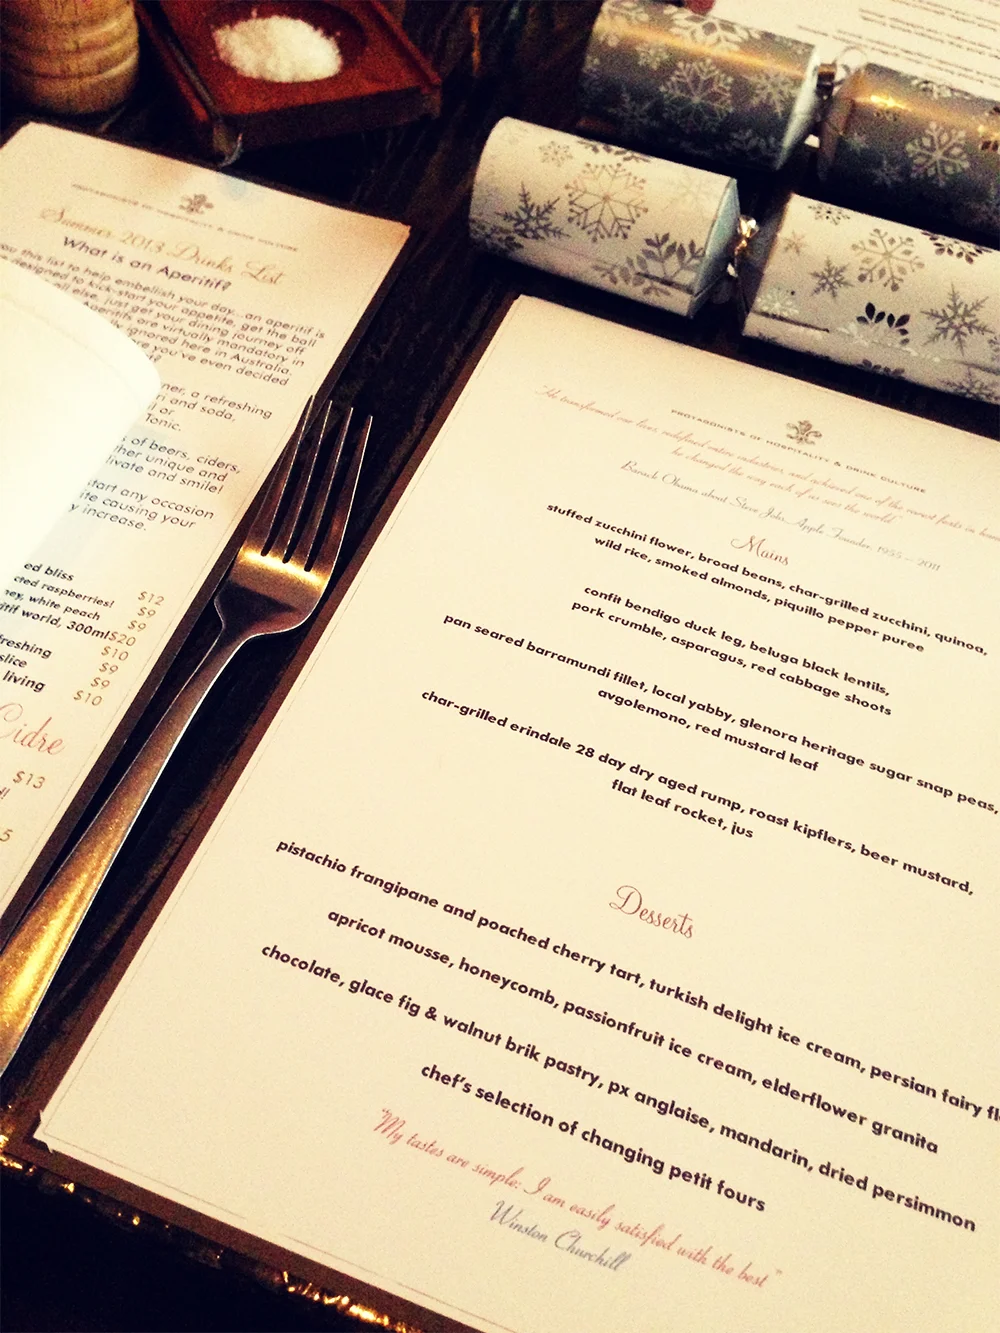 PROTAGONISTS OF HOSPITALITY & DRINK CULTURE
Summer 2013 Drinks List
What is an Aperitif?
you this list to help embellish your day...an aperitif is
designed to kick-start your appetite, get the ball
all else, just get your dining journey off
Aperitifs are virtually mandatory in
ignored here in Australia.
you've even decided
a refreshing
and soda,
or
Tonic.
of beers, ciders,
other unique and
and smile!
start any occasion
causing your
increase.
ed bliss $12
raspberries! $9
white peach $9
world, 300ml $20
$10
slice $9
living $9
$10
Cidre
$13
5
PROTAGONISTS OF HOSPITALITY & DRINK CULTURE
"He transformed our lives, redefined entire industries, and achieved one of the rarest feats in
he changed the way each of us sees the world"
Barack Obama about Steve Jobs, Apple Founder, 1955 – 2011
Mains
stuffed zucchini flower, broad beans, char-grilled zucchini, quinoa,
wild rice, smoked almonds, piquillo pepper puree
confit bendigo duck leg, beluga black lentils,
pork crumble, asparagus, red cabbage shoots
pan seared barramundi fillet, local yabby, glenora heritage sugar snap peas,
avgolemono, red mustard leaf
char-grilled erindale 28 day dry aged rump, roast kipflers, beer mustard,
flat leaf rocket, jus
Desserts
pistachio frangipane and poached cherry tart, turkish delight ice cream, persian fairy
apricot mousse, honeycomb, passionfruit ice cream, elderflower granita
chocolate, glace fig & walnut brik pastry, px anglaise, mandarin, dried persimmon
chef's selection of changing petit fours
"My tastes are simple: I am easily satisfied with the best"
Winston Churchill